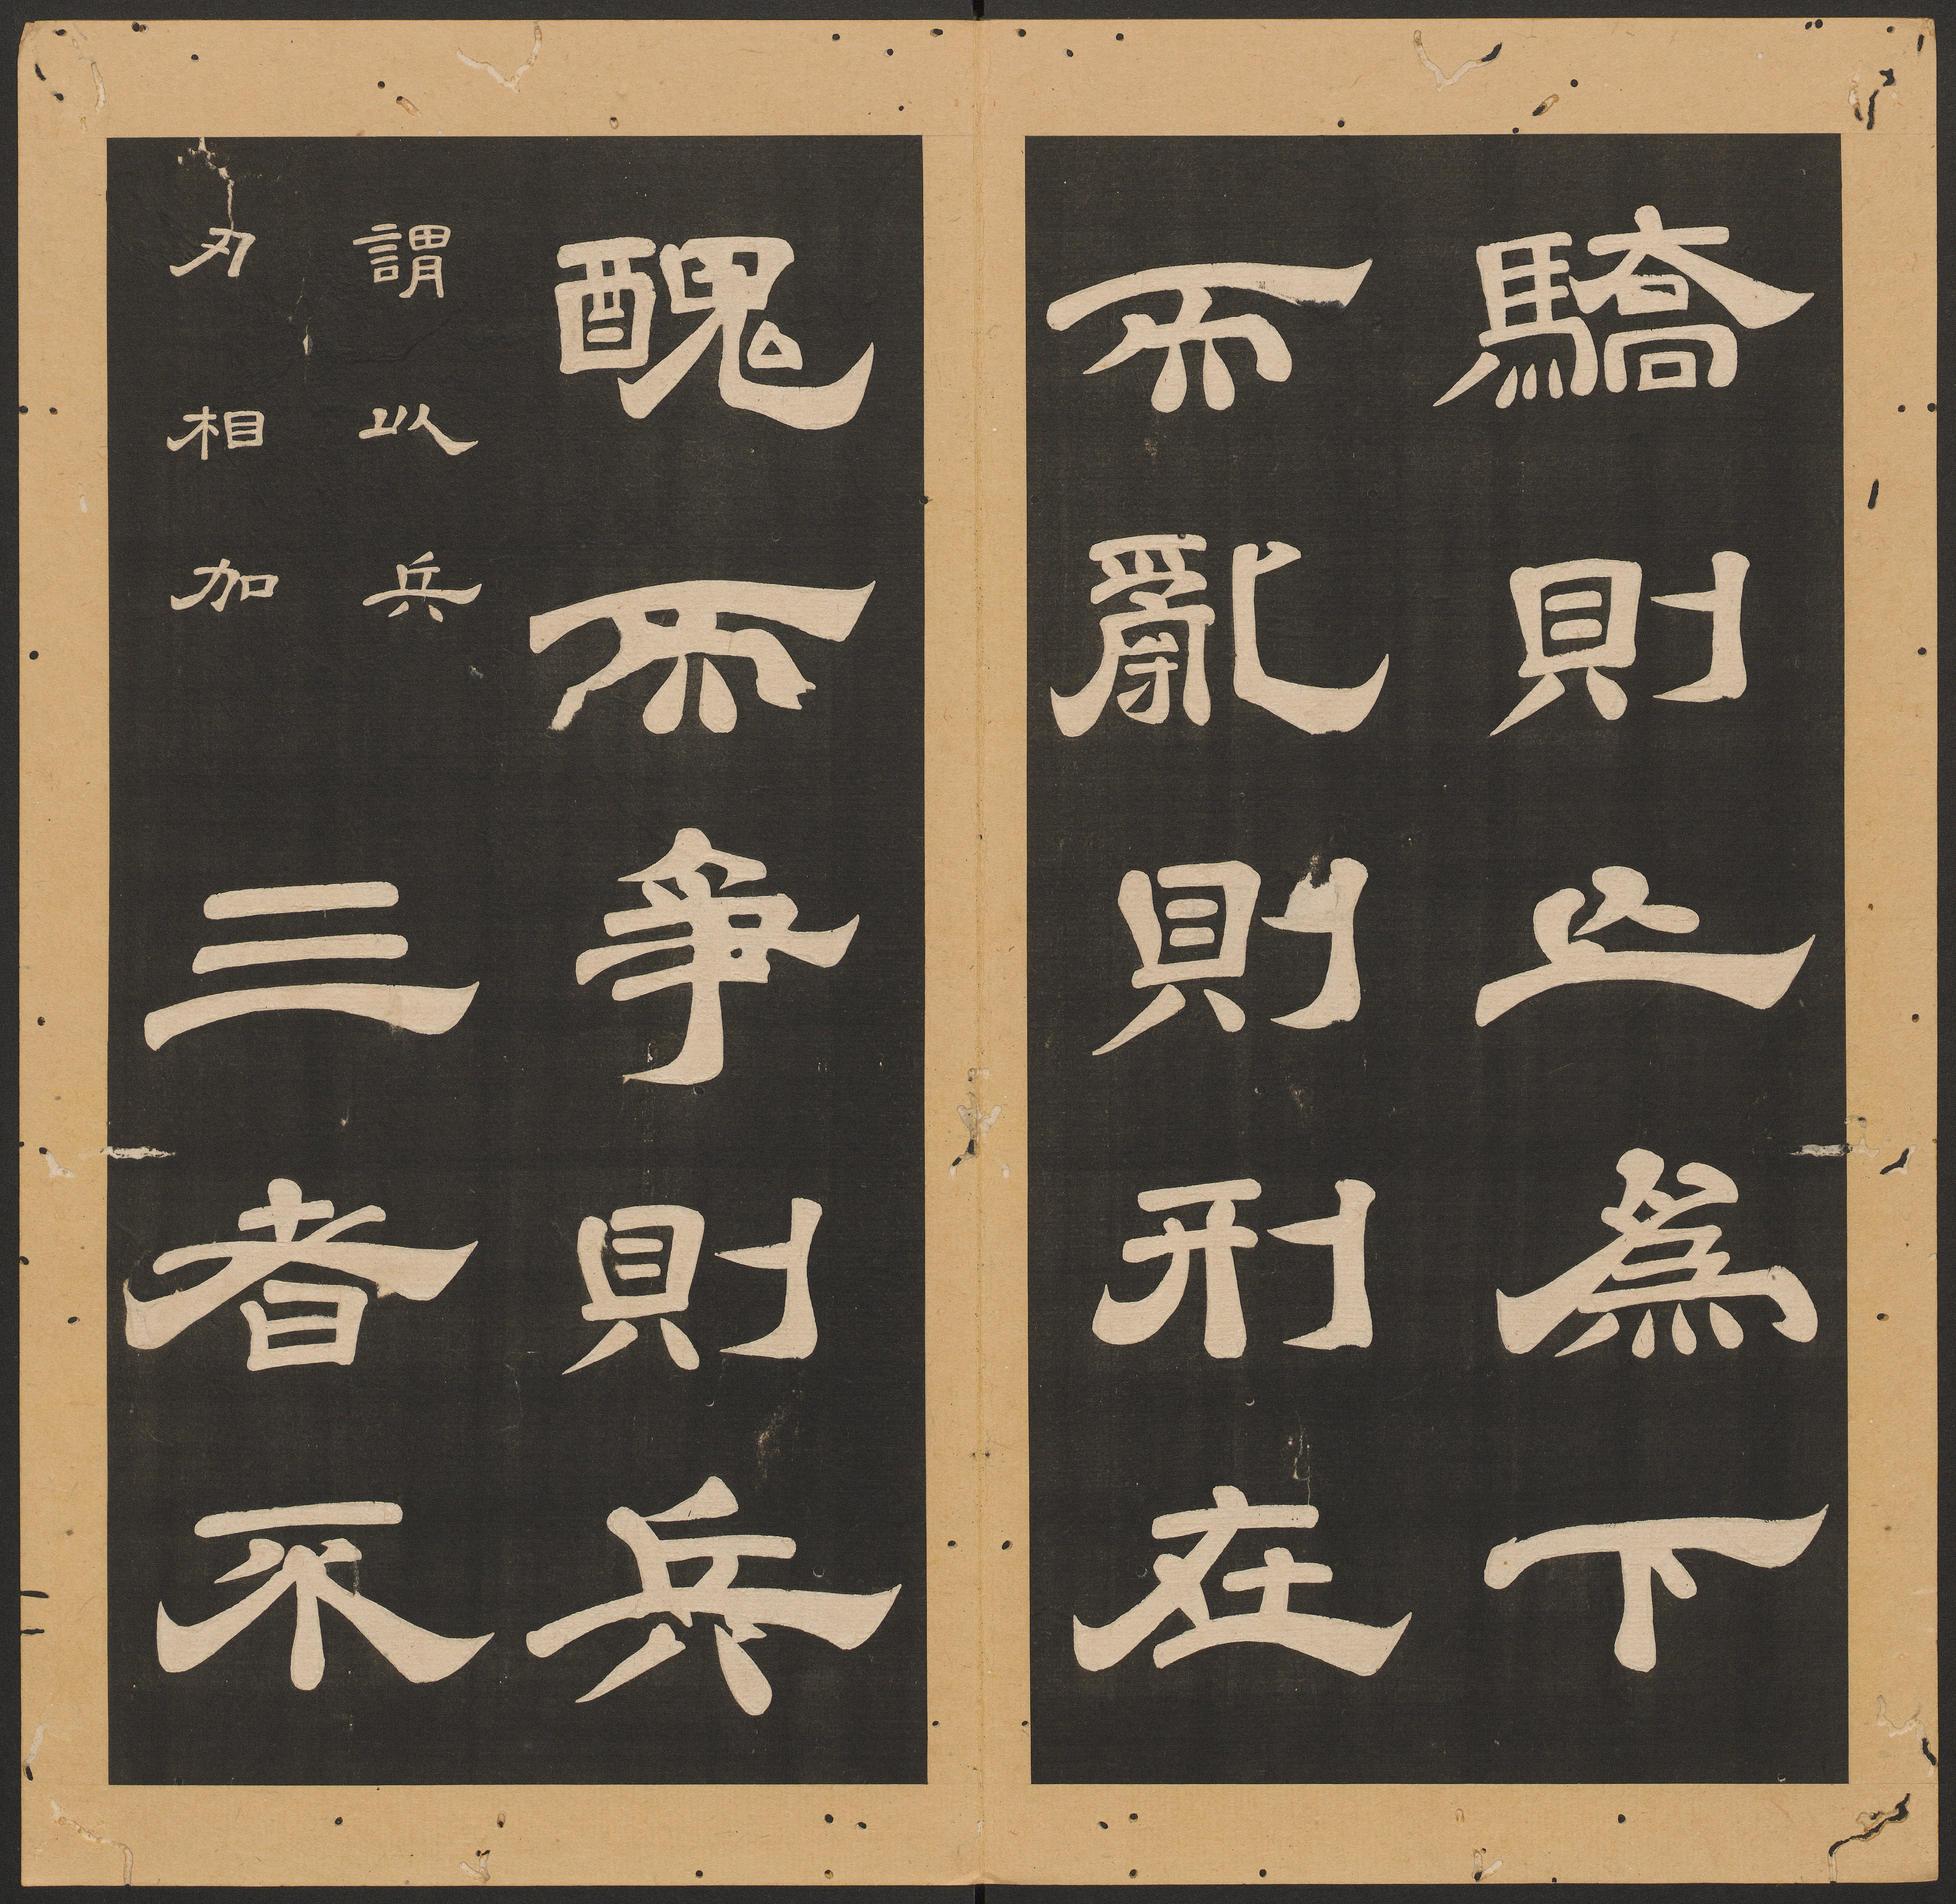 驕則亡爲下
而亂則刑在
醜而爭則兵
謂以兵
刃相加
三者不